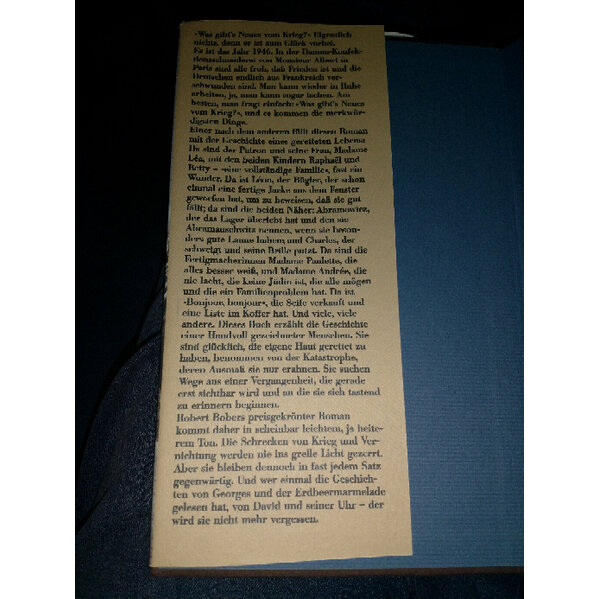 »Was gibt's Neues vom Krieg?« Eigentlich
nichts, denn er ist zum Glück vorbei.
Es ist das Jahr 1946. In der Damen-Konfek-
tionsschneiderei von Monsieur Albert in
Paris sind alle froh, daß Frieden ist und die
Deutschen endlich aus Frankreich ver-
schwunden sind. Man kann wieder in Ruhe
arbeiten, ja, man kann sogar lachen. Am
besten, man fragt einfach: »Was gibt's Neues
vom Krieg?«, und es kommen die merkwür-
digsten Dinge.
Einer nach dem anderen füllt diesen Roman
mit der Geschichte eines geretteten Lebens:
Da sind der Patron und seine Frau, Madame
Léa, mit den beiden Kindern Raphaël und
Betty – »eine vollständige Familie«, fast ein
Wunder. Da ist Léon, der Bügler, der schon
einmal eine fertige Jacke aus dem Fenster
geworfen hat, um zu beweisen, daß sie gut
fällt; da sind die beiden Näher: Abramowicz,
der das Lager überlebt hat und den sie
Abramauschwitz nennen, wenn sie beson-
ders gute Laune haben; und Charles, der
schweigt und seine Brille putzt. Da sind die
Fertigmacherinnen Madame Paulette, die
alles besser weiß, und Madame Andrée, die
nie lacht, die keine Jüdin ist, die alle mögen
und die ein Familienproblem hat. Da ist
»Bonjour, bonjour«, die Seife verkauft und
eine Liste im Koffer hat. Und viele, viele
andere. Dieses Buch erzählt die Geschichte
einer Handvoll gezeichneter Menschen. Sie
sind glücklich, die eigene Haut gerettet zu
haben, benommen von der Katastrophe,
deren Ausmaß sie nur erahnen. Sie suchen
Wege aus einer Vergangenheit, die gerade
erst sichtbar wird und an die sie sich tastend
zu erinnern beginnen.
Robert Bobers preisgekrönter Roman
kommt daher in scheinbar leichtem, ja heite-
rem Ton. Die Schrecken von Krieg und Ver-
nichtung werden nie ins grelle Licht gezerrt.
Aber sie bleiben dennoch in fast jedem Satz
gegenwärtig. Und wer einmal die Geschich-
ten von Georges und der Erdbeermarmelade
gelesen hat, von David und seiner Uhr – der
wird sie nicht mehr vergessen.